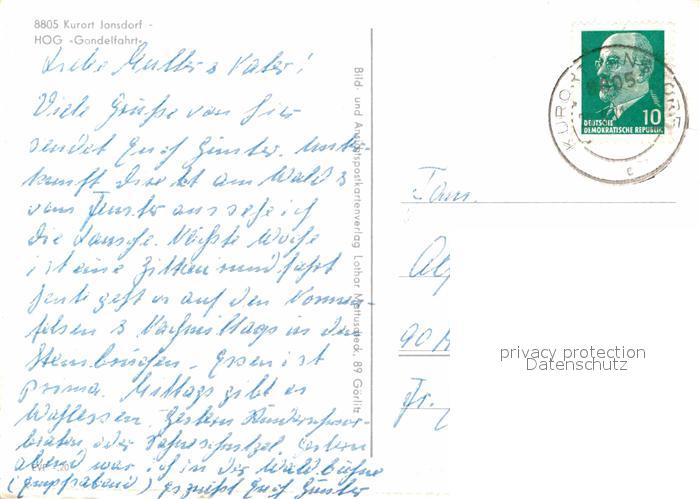 8805 Kurort Jonsdorf -
HOG «Gondelfahrt»
Liebe Mutter & Vater!
Viele Grüße von hier
sendet Euch Günter. Unter-
kunft direkt am Wald &
vom Fenster aus sehe ich
die Lausche. Nächste Woche
ist eine Zittau rundfahrt
heute geht es auf den Nonnen-
felsen & Nachmittags in den
Steinbrüchen. Essen ist
prima. Mittags gibt es
Wahlessen. Gestern Rinderschmor-
braten oder Sahneschnitzel. Gestern
abend war ich in der Waldbühne
es grüßt Euch Günter
Bild- und Ansichtspostkartenverlag Lothar Mattuscheck, 89 Görlitz
DEUTSCHE
DEMOKRATISCHE REPUBLIK
10
KURORT JONSDORF
8805
Fam.
privacy protection
Datenschutz